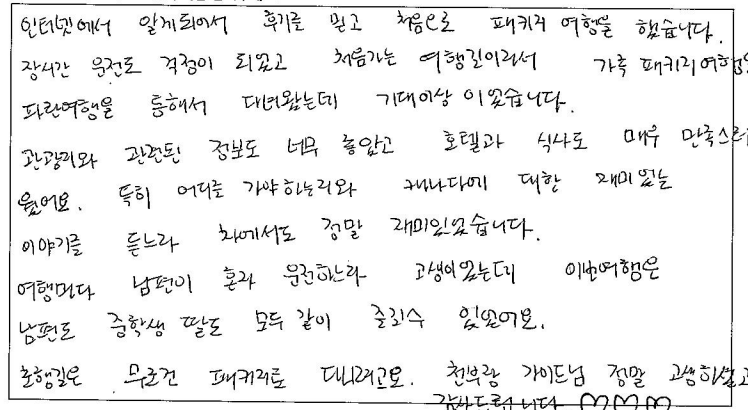 인터넷에서 알게되어서 후기를 믿고 처음으로 패키지 여행을 했습니다.
장시간 운전도 걱정이 되었고 처음가는 여행길이라서 가족 패키지여행을
파란여행을 통해서 다녀왔는데 기대이상 이었습니다.
관광지와 관련된 정보도 너무 좋았고 호텔과 식사도 매우 만족스러
웠어요. 특히 어디를 가야하는지와 캐나다에 대한 재미있는
이야기를 듣느라 차에서도 정말 재미있었습니다.
여행마다 남편이 혼자 운전하느라 고생이었는데 이번여행은
남편도 중학생 딸도 모두 같이 즐길수 있었어요.
초행길은 무조건 패키지로 다니려고요. 가이드님 정말 고생하셨고
감사드립니다 ♡♡♡